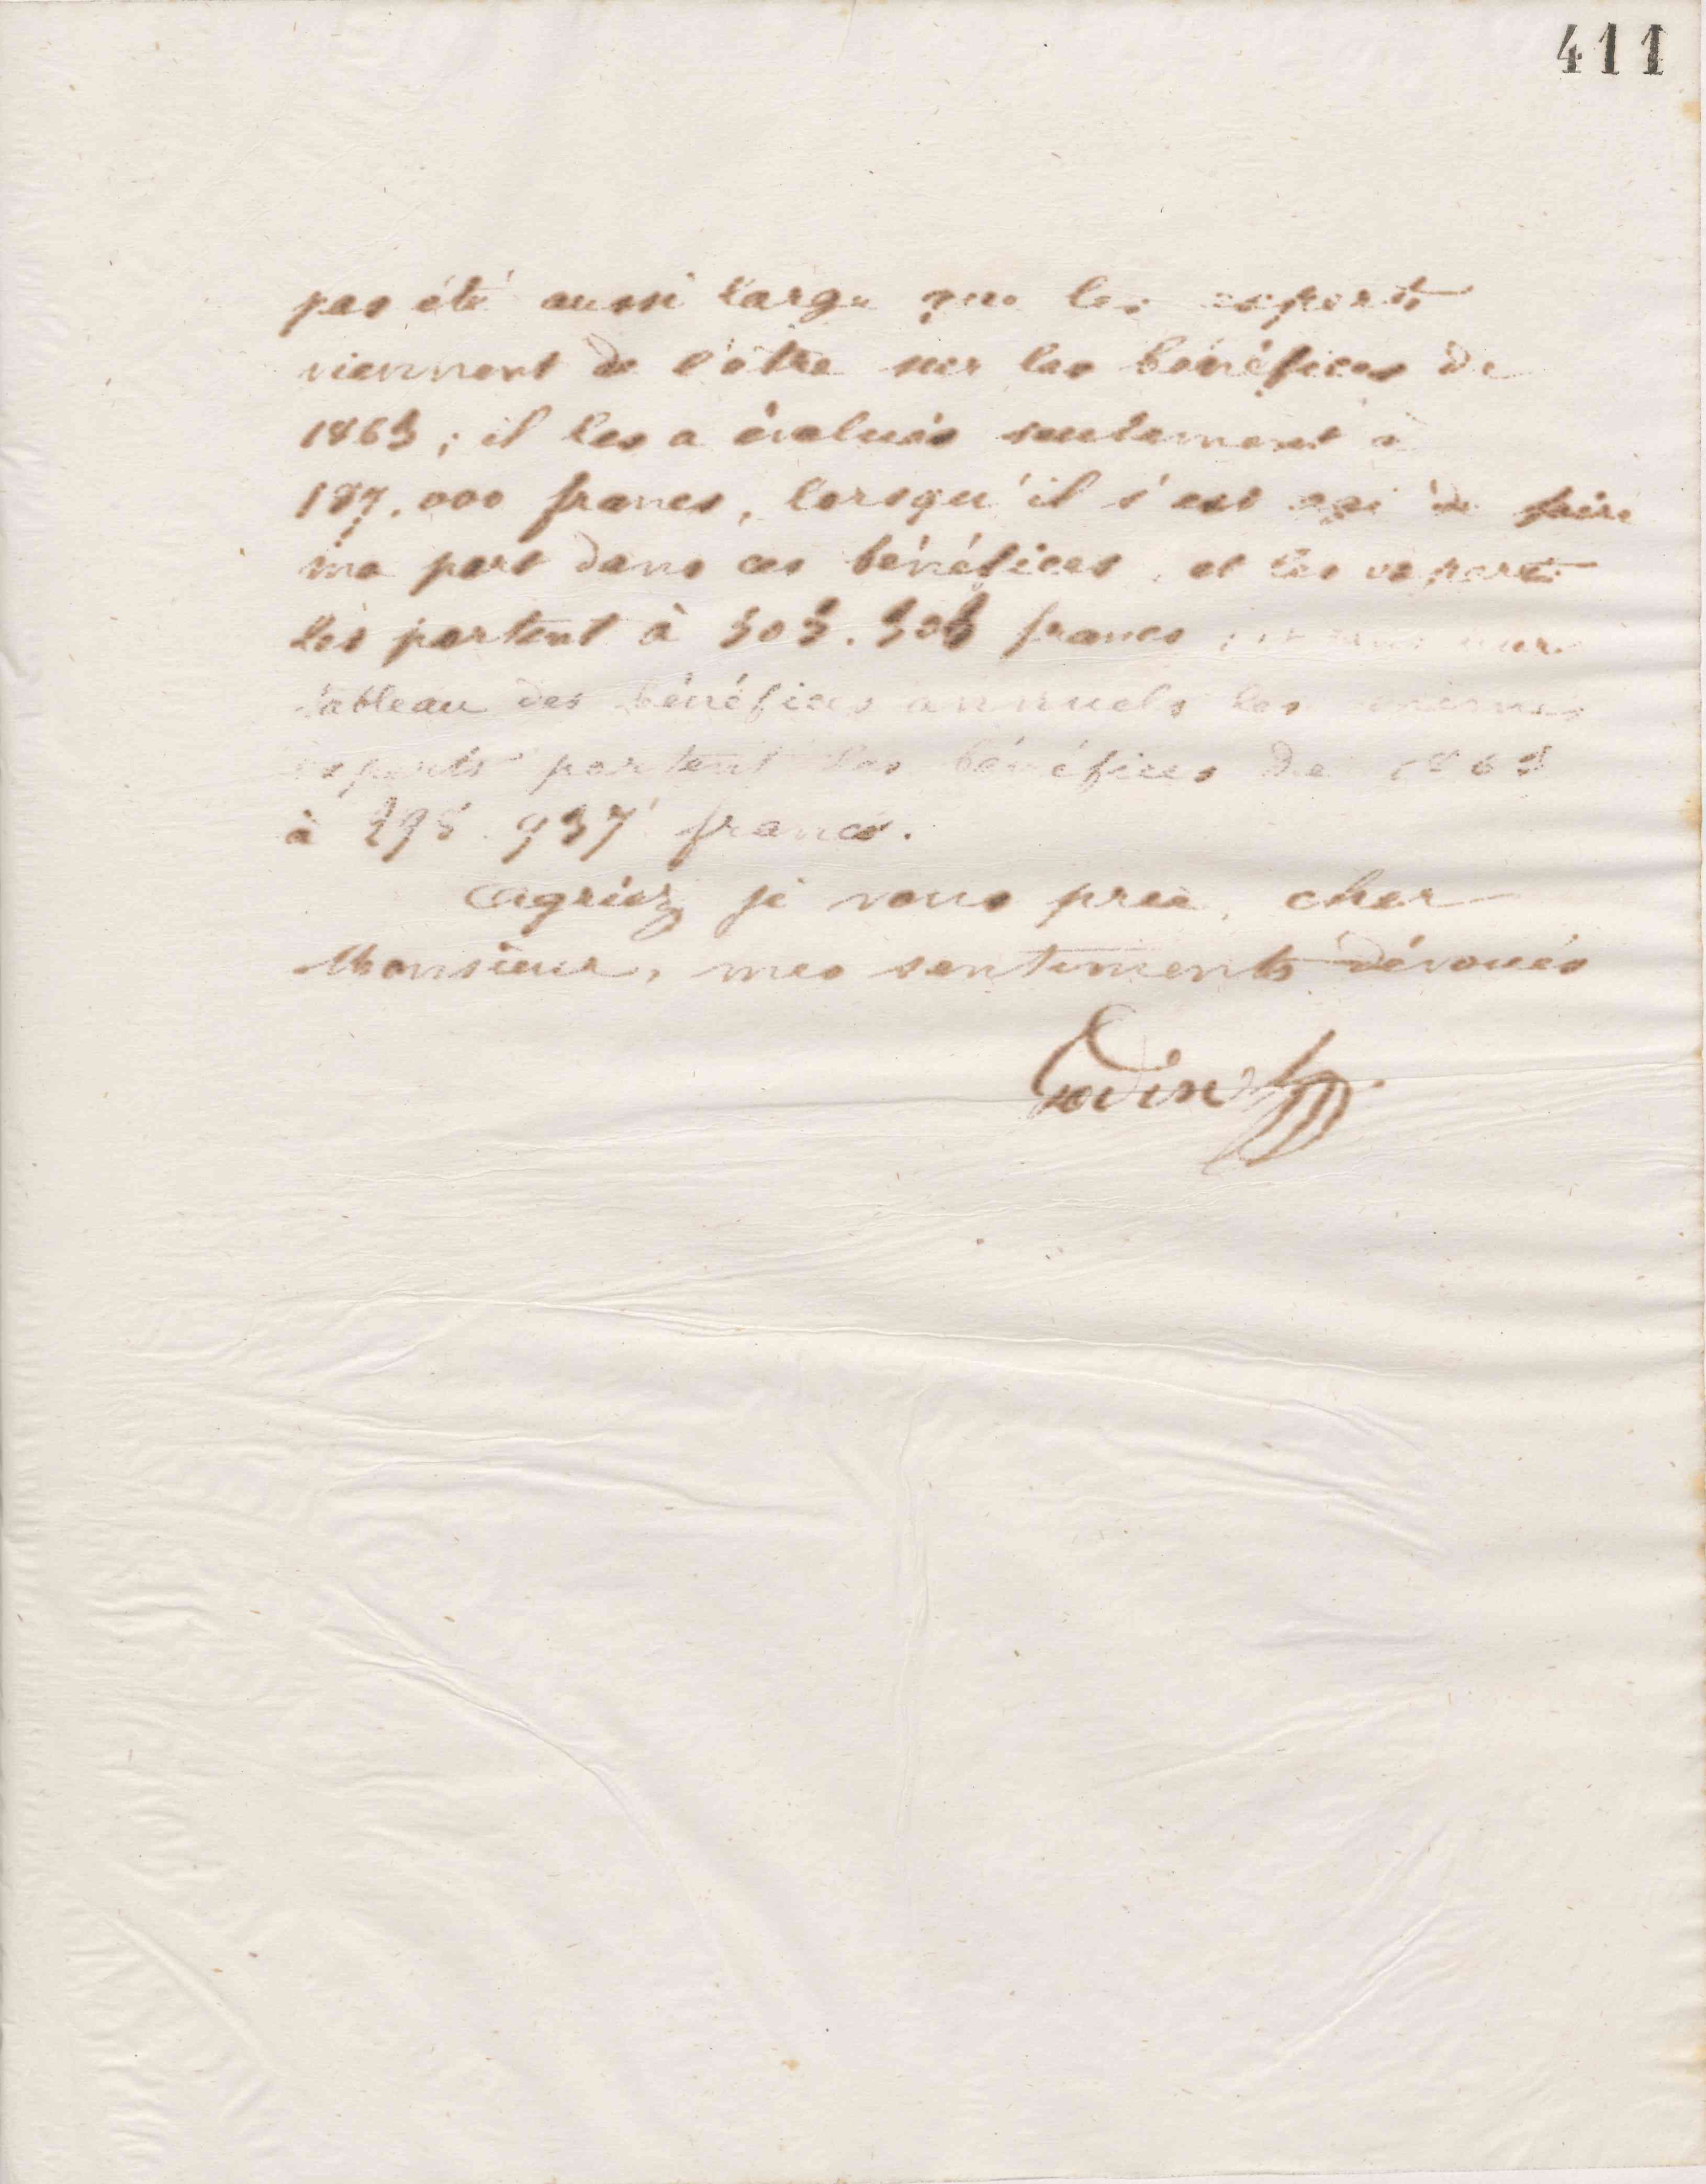 411
pas été aussi large que les experts
viennent de l'être sur les bénéfices de
1863 ; il les a évalués seulement à
187.000 francs, lorsqu'il s'est agi de faire
ma part dans ces bénéfices, et les experts
les portent à 303.303 francs ; et dans leur
tableau des bénéfices annuels les mêmes
experts portent les bénéfices de 1863
à 298.937 francs.
Agréez je vous prie, cher
Monsieur, mes sentiments dévoués
Godin